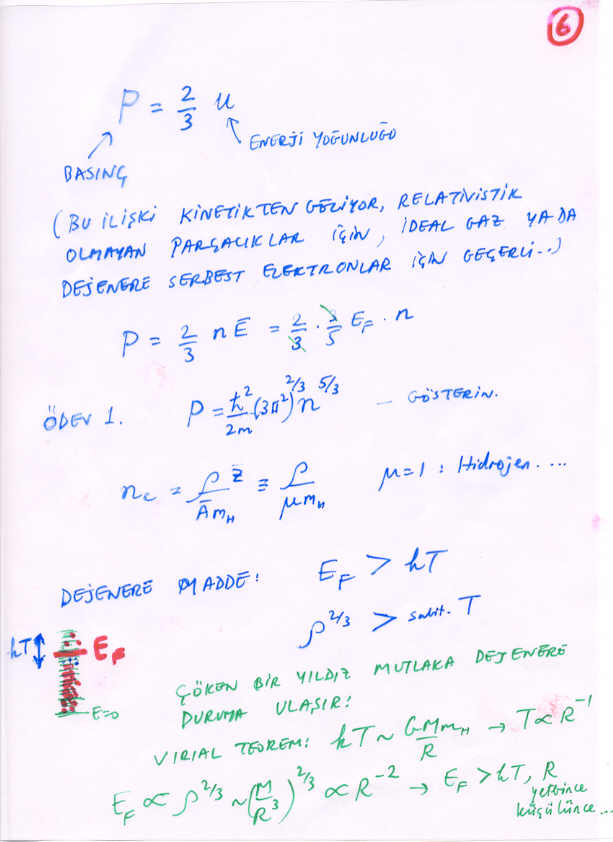 6
P = 2/3 u
BASINÇ
ENERJİ YOĞUNLUĞU
(BU İLİŞKİ KİNETİKTEN GELİYOR, RELATİVİSTİK
OLMAYAN PARÇACIKLAR İÇİN, İDEAL GAZ YADA
DEJENERE SERBEST ELEKTRONLAR İÇİN GEÇERLİ..)
P = 2/3 n Ē = 2/3 · 3/5 E_F · n
ÖDEV 1. P = ħ²/2m (3π²)^2/3 n^5/3 — GÖSTERİN.
n_e = ρ Z / Ā m_H ≡ ρ / μ m_H μ=1 : Hidrojen....
DEJENERE MADDE: E_F > kT
ρ^2/3 > sabit. T
kT E_F
E=0
ÇÖKEN BİR YILDIZ MUTLAKA DEJENERE
DURUMA ULAŞIR:
VIRIAL TEOREM: kT ~ GMm_H/R → T ∝ R^-1
E_F ∝ ρ^2/3 ~ (M/R³)^2/3 ∝ R^-2 → E_F > kT, R
yetince
küçülünce...